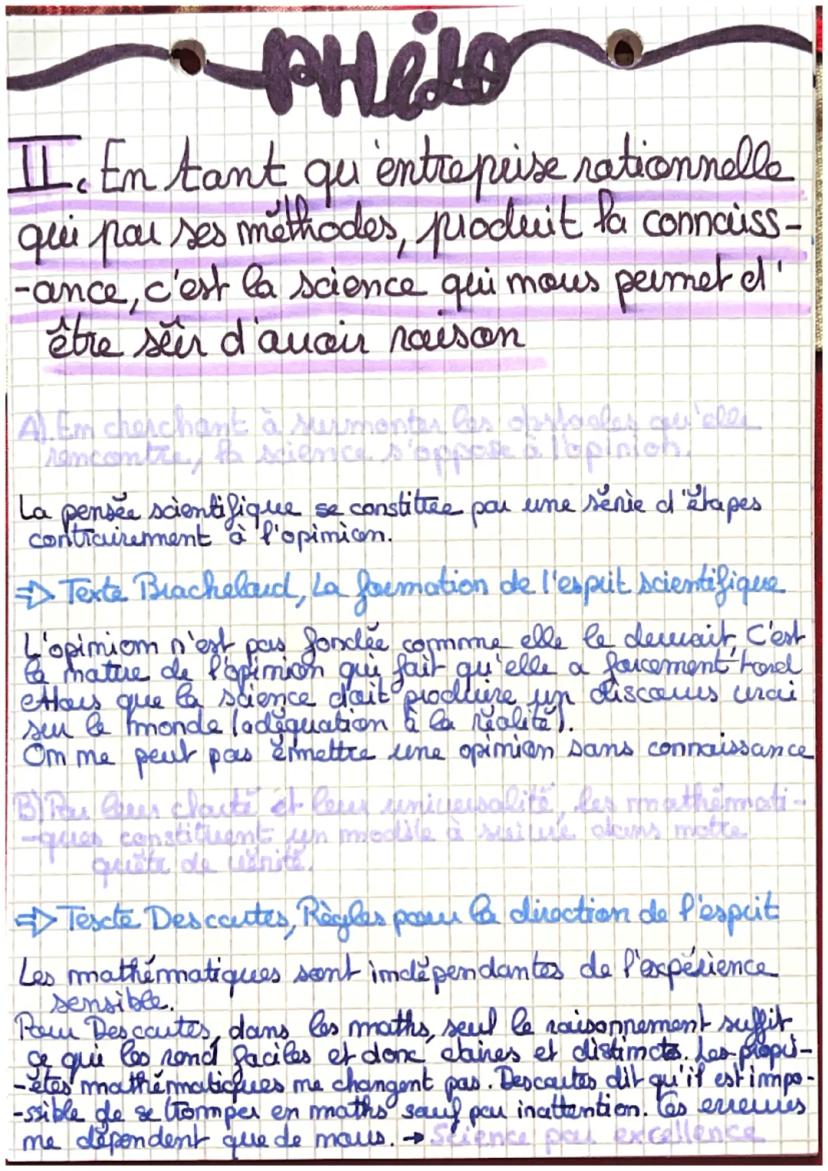 PHilo
II. En tant qu'entreprise rationnelle
qui par ses méthodes, produit la connaiss-
-ance, c'est la science qui nous permet d'
être sûr d'avoir raison
A). En cherchant à surmonter les obstacles qu'elle
rencontre, la science s'oppose à l'opinion.
La pensée scientifique se constitue par une série d'étapes
contrairement à l'opinion.
⇒ Texte Brachelard, La formation de l'esprit scientifique
L'opinion n'est pas fondée comme elle le devrait, C'est
la nature de l'opinion qui fait qu'elle a forcement tord
Alors que la science doit produire un discours vrai
sur le monde (adéquation à la réalité).
On ne peut pas émettre une opinion sans connaissance
B) Par leur clarté et leur universalité, les mathémati-
-ques constituent un modèle à suivre dans notre
quête de vérité.
⇒ Texte Descartes, Règles pour la direction de l'esprit
Les mathématiques sont indépendantes de l'expérience
sensible.
Pour Descartes, dans les maths, seul le raisonnement suffit
ce qui les rend faciles et donc claires et distinctes. Les propri-
-étés mathématiques ne changent pas. Descartes dit qu'il est impo-
-ssible de se tromper en maths sauf par inattention. Ces erreurs
ne dépendent que de nous. → Science par excellence